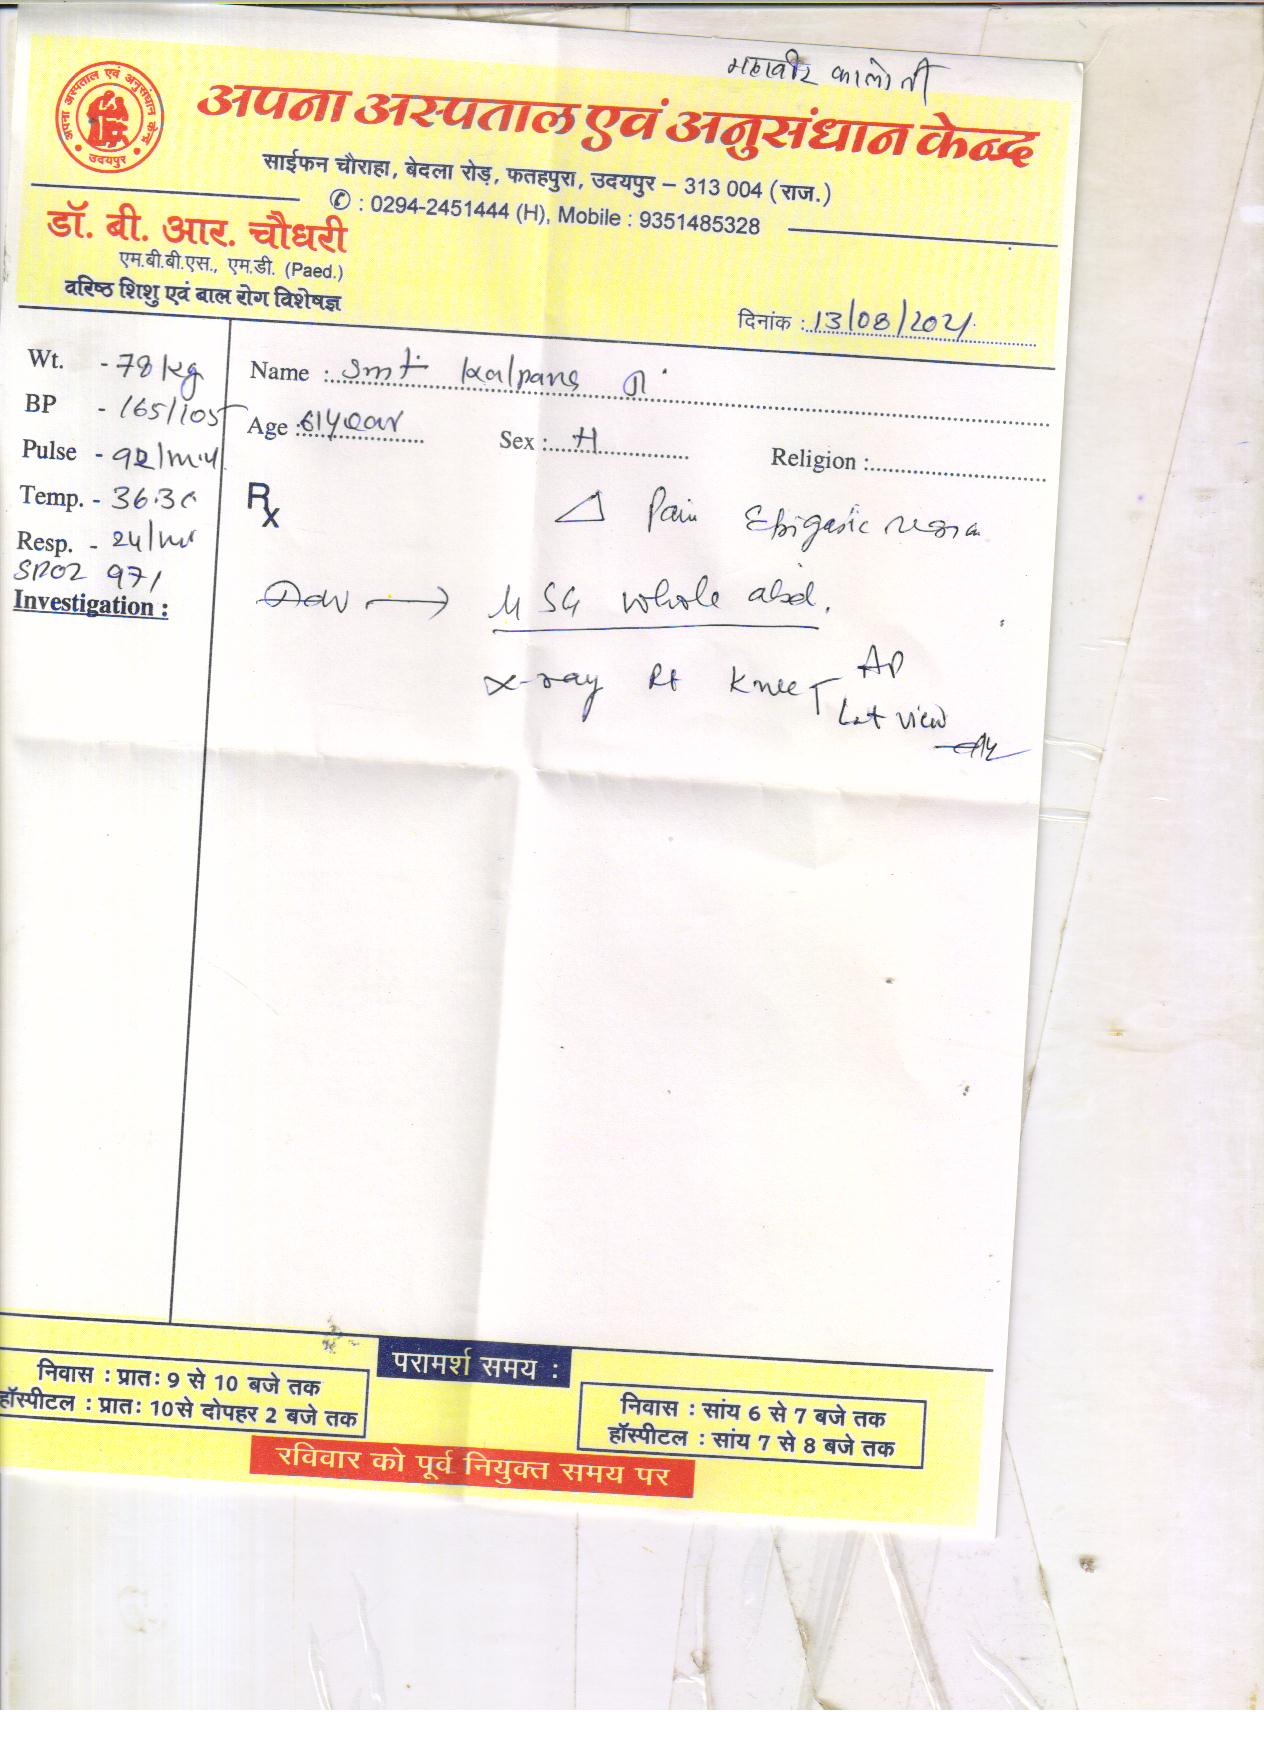 महावीर कालोनी
अपना अस्पताल एवं अनुसंधान केन्द्र
उदयपुर
अपना अस्पताल एवं अनुसंधान केन्द्र
साईफन चौराहा, बेदला रोड़, फतहपुरा, उदयपुर – 313 004 (राज.)
✆ : 0294-2451444 (H), Mobile : 9351485328
डॉ. बी. आर. चौधरी
एम.बी.बी.एस., एम.डी. (Paed.)
वरिष्ठ शिशु एवं बाल रोग विशेषज्ञ
दिनांक : 13/08/2021
Wt. - 78 kg
BP - 165/105
Pulse - 92/min
Temp. - 36.3c
Resp. - 24/
SPO2 97%
Investigation :
Name : Smt Kalpana
Age : 61 year
Sex :
Religion :
Rx
△ Pain Epigastic region
Adv → USG whole abd.
X-ray Rt Knee AP
Lat view
परामर्श समय :
निवास : प्रातः 9 से 10 बजे तक
हॉस्पीटल : प्रातः 10 से दोपहर 2 बजे तक
निवास : सांय 6 से 7 बजे तक
हॉस्पीटल : सांय 7 से 8 बजे तक
रविवार को पूर्व नियुक्त समय पर